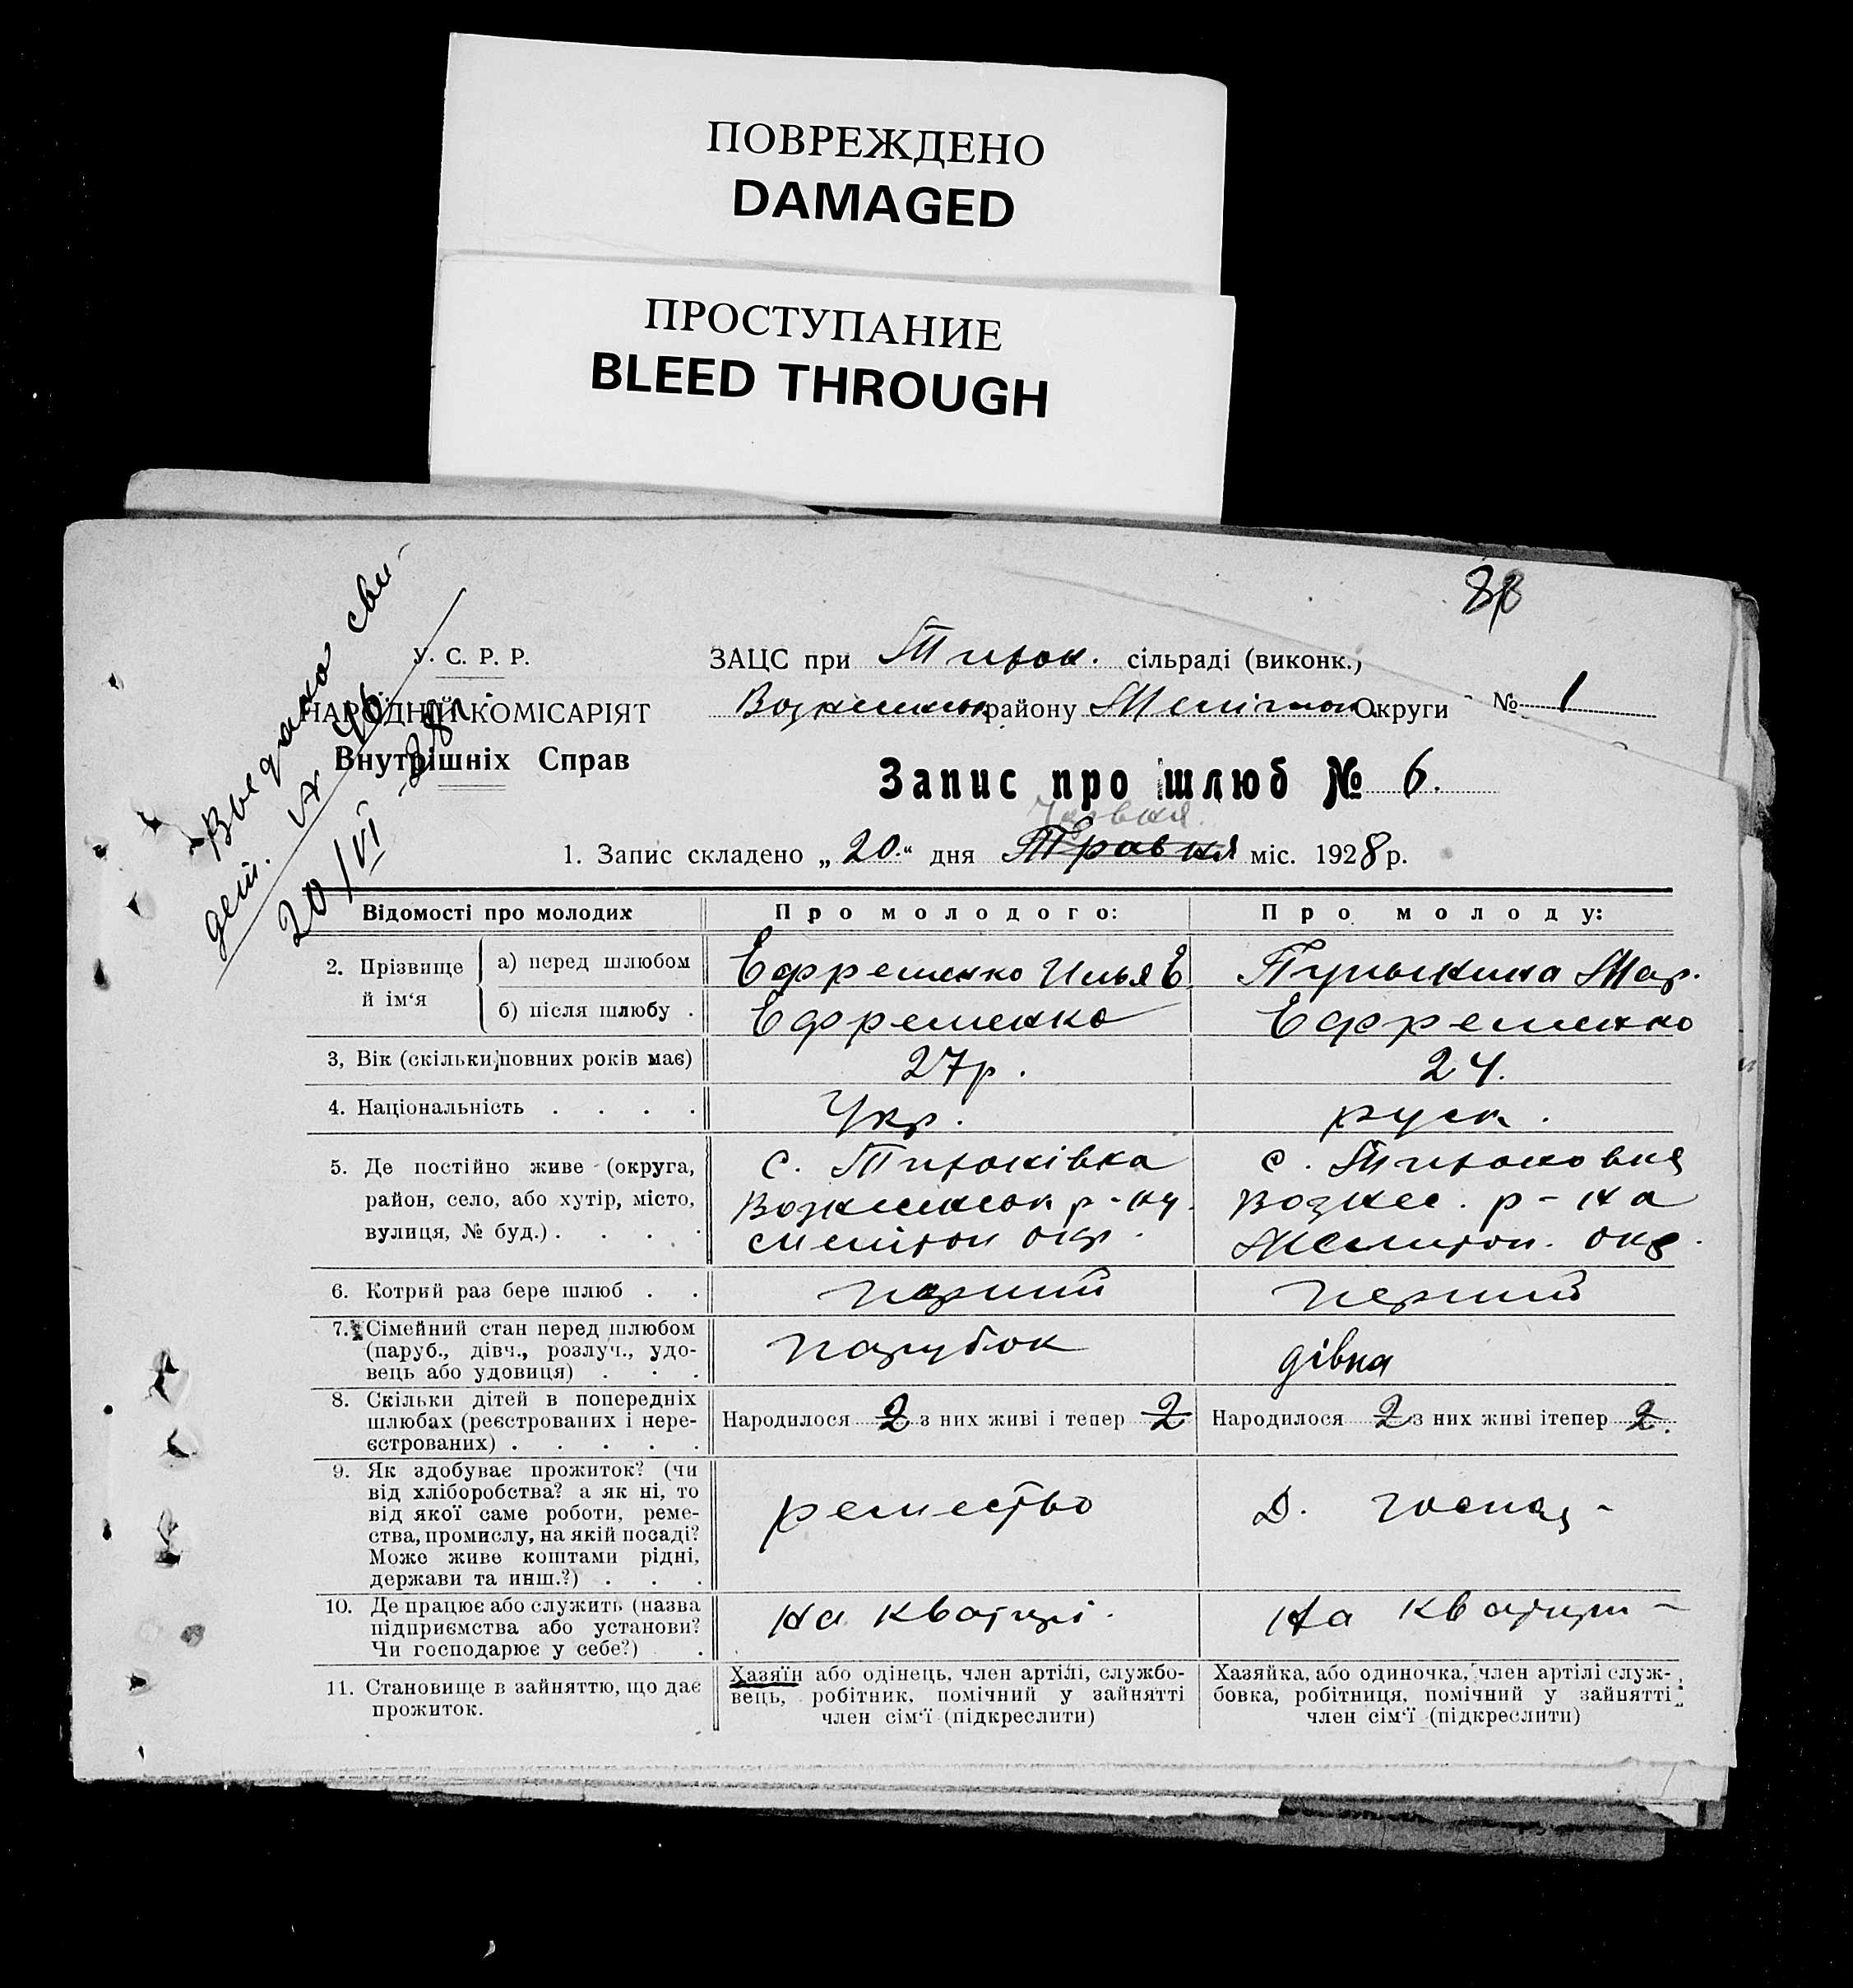 ПОВРЕЖДЕНО
DAMAGED
ПРОСТУПАНИЕ
BLEED THROUGH
У. С. Р. Р.
НАРОДНІЙ КОМІСАРІЯТ
Внутрішніх Справ
20/VI
ЗАЦС при сільраді (виконк.)
району Округи № 1
Запис про шлюб № 6.
Червня
1. Запис складено „20.“ дня Травня міс. 1928 р.
Відомості про молодих Про молодого: Про молоду:
2. Прізвище й ім‘я
а) перед шлюбом Ефременко Илья Е
б) після шлюбу . Ефременко Ефременко
3, Вік (скільки повних років має) 27р. 24.
4. Національність . . . . Укр. руск.
5. Де постійно живе (округа,
район, село, або хутір, місто,
вулиця, № буд.) . . . .
с.
р-ну
окр.
с.
Вознес. р-на
окр.
6. Котрий раз бере шлюб . . перший перший
7. Сімейний стан перед шлюбом
(паруб., дівч., розлуч., удо-
вець або удовиця) . . . парубок дівка
8. Скільки дітей в попередніх
шлюбах (реєстрованих і нере-
єстрованих) . . . . .
Народилося 2 з них живі і тепер 2 Народилося 2 з них живі ітепер 2.
9. Як здобуває прожиток? (чи
від хліборобства? а як ні, то
від якої саме роботи, реме-
ства, промислу, на якій посаді?
Може живе коштами рідні,
держави та инш.?) . . .
ремество Д. господ-
10. Де працює або служить (назва
підприємства або установи?
Чи господарює у себе?) .
на квартирі. на квартири-
11. Становище в зайняттю, що дає
прожиток.
Хазяїн або одінець, член артілі, службо-
вець, робітник, помічний у зайнятті
член сім‘ї (підкреслити)
Хазяйка, або одиночка, член артілі служ-
бовка, робітниця, помічний у зайнятті
член сім‘ї (підкреслити)